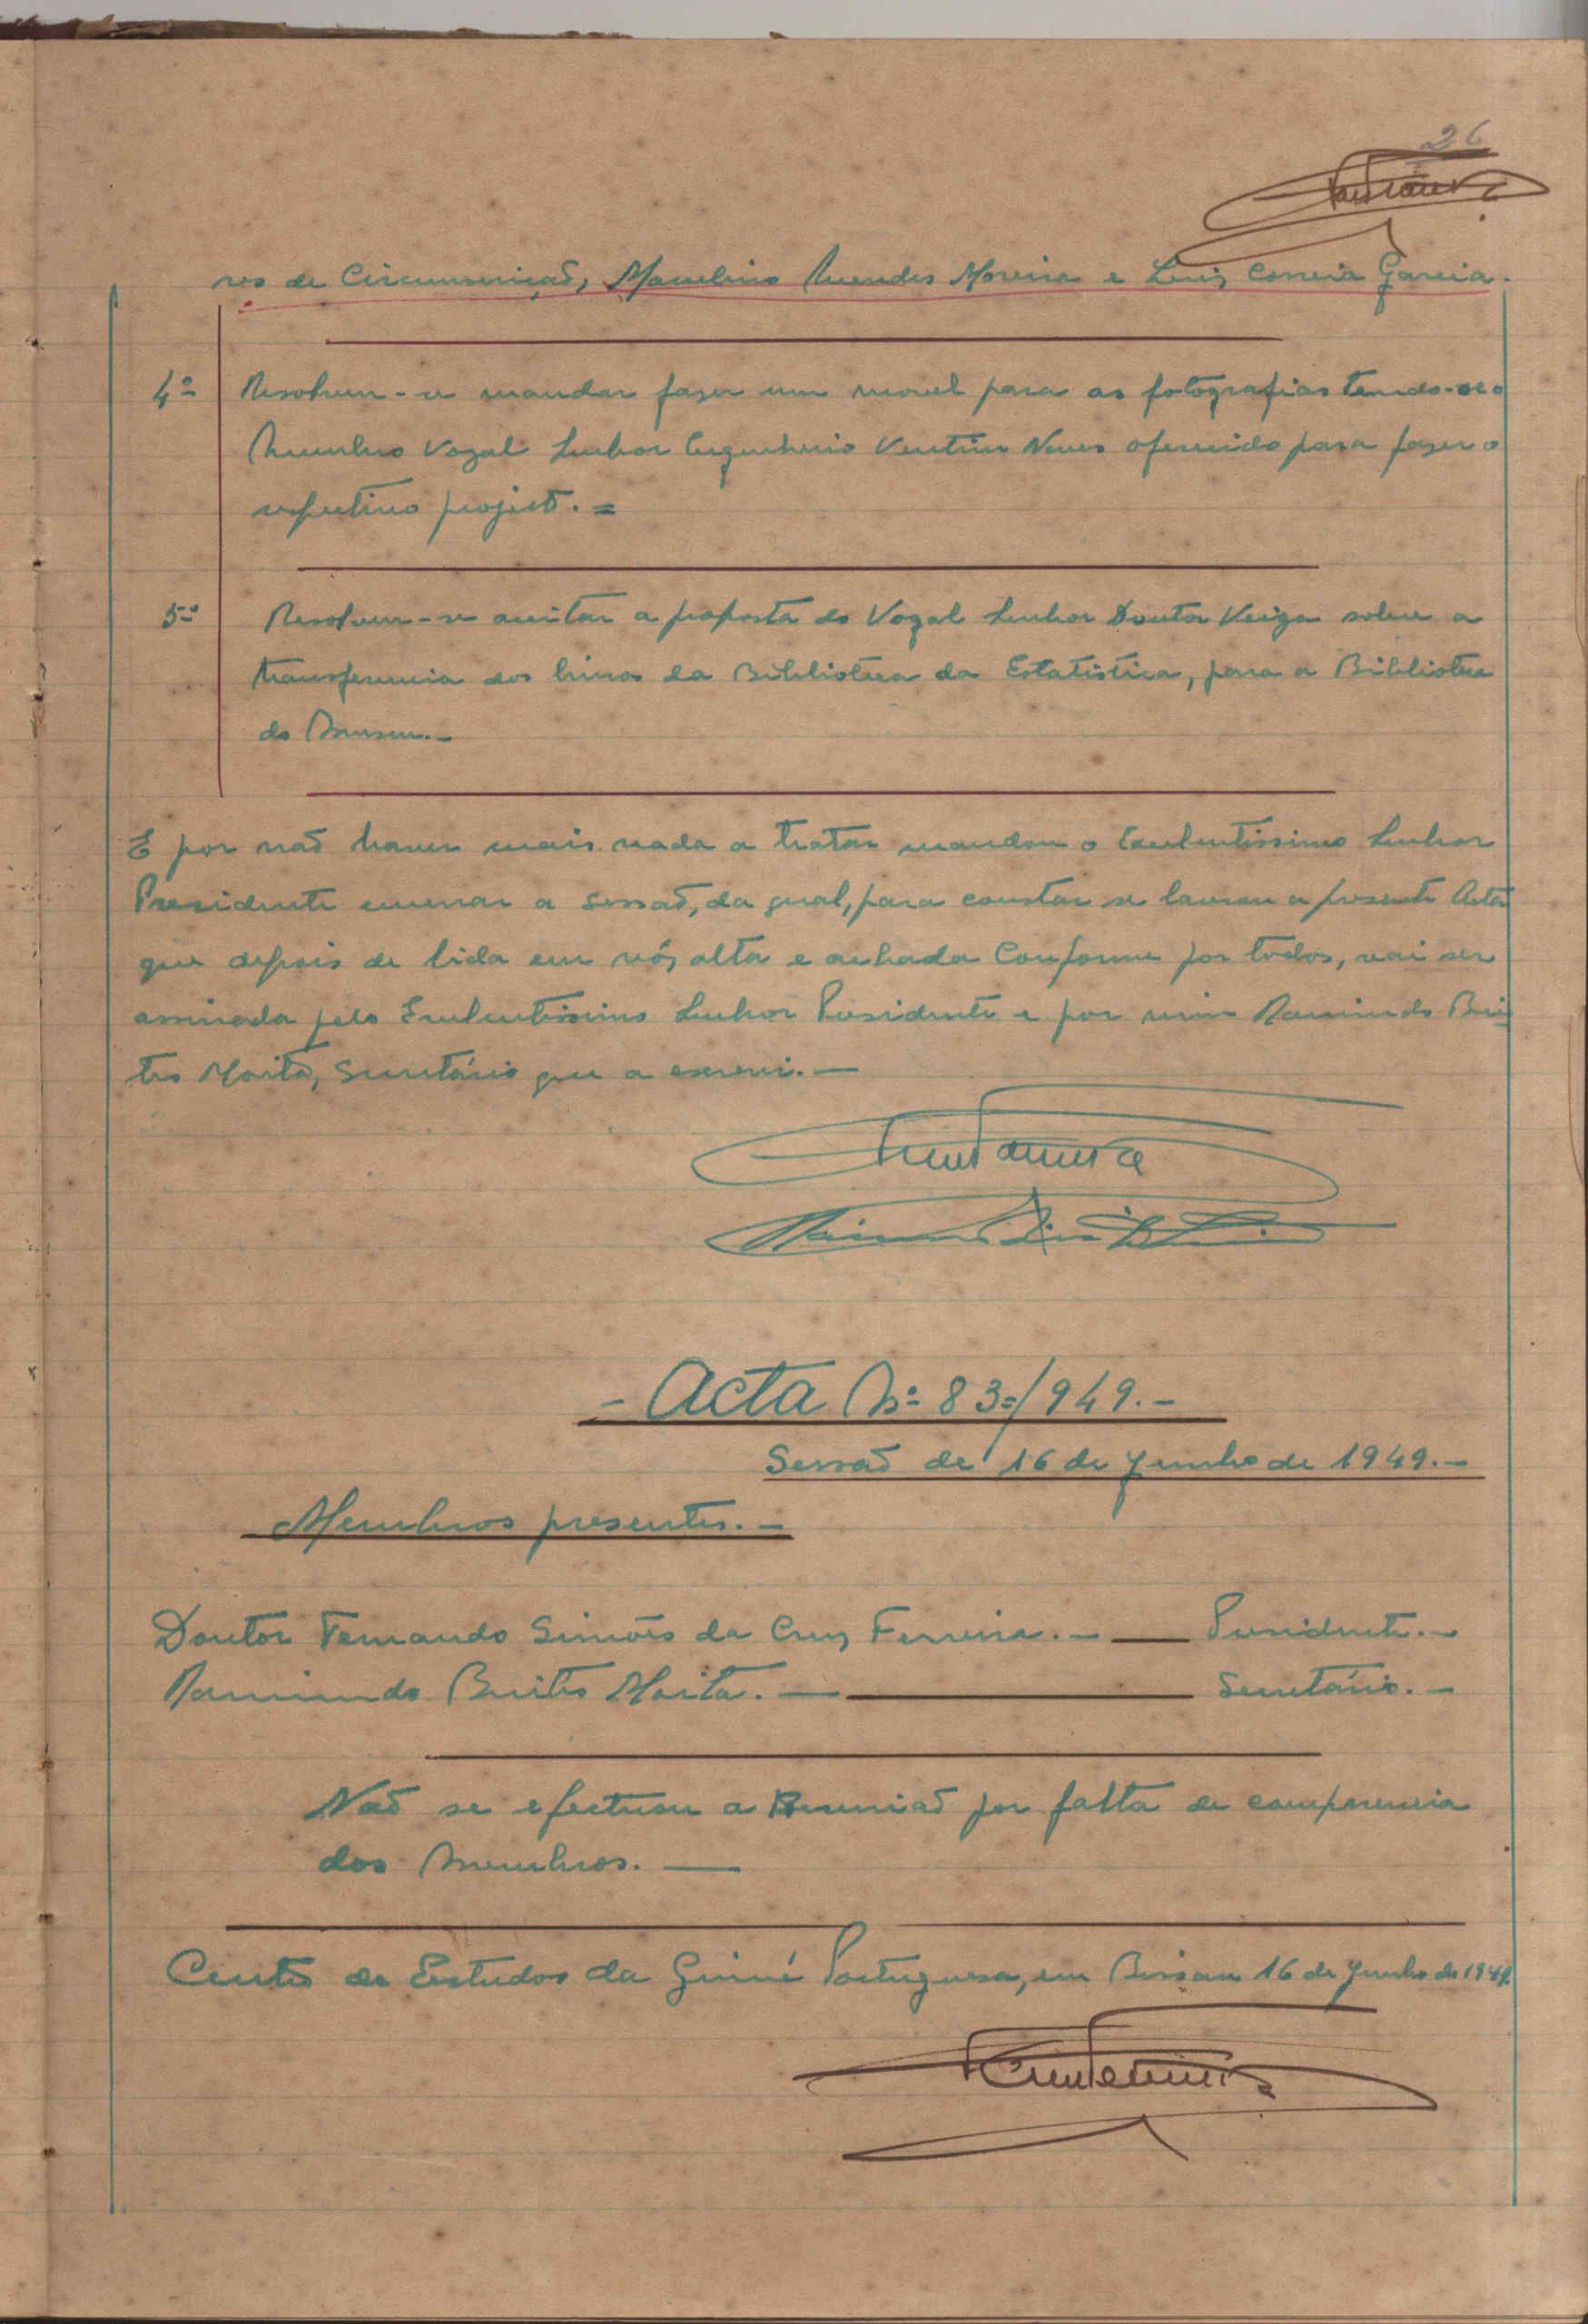 26
res de Circunscrição, Marcelino Mendes Moreira e Luiz Correia Garcia.
4º Resolveu-se mandar fazer um movel para as fotografias tendo-se o
Membro Vogal Senhor Engenheiro Ventim Neves oferecido para fazer o
respectivo projecto. =
5º Resolveu-se aceitar a proposta do Vogal Senhor Doutor Veiga sobre a
transferencia dos livros da Biblioteca da Estatistica, para a Biblioteca
do Museu.-
E por não haver mais nada a tratar mandou o Excelentissimo Senhor
Presidente encerrar a sessão, da qual, para constar se lavrou a presente Acta
que depois de lida em vóz alta e achada Conforme por todos, vai ser
assinada pelo Excelentissimo Senhor Presidente e por mim Raimundo Bri
tes Moita, Secretário que a escrevi. —
- Acta Nº 83=/949.-
Sessão de 16 de Junho de 1949.-
Membros presentes.-
Doutor Fernando Simões da Cruz Ferreira.- — Presidente.-
Raimundo Brites Moita. — Secretário.-
Não se efectuou a Reunião por falta de comparencia
dos Membros. —
Centro de Estudos da Guiné Portuguesa, em Bissau 16 de Junho de 1949.